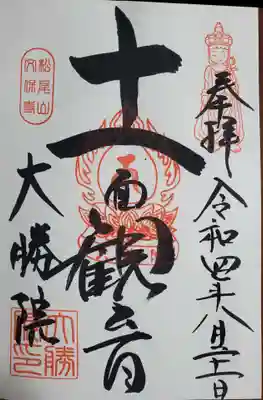 奉拝
令和四年八月二十一日
十一面観音
大勝院
松尾山
大勝院印